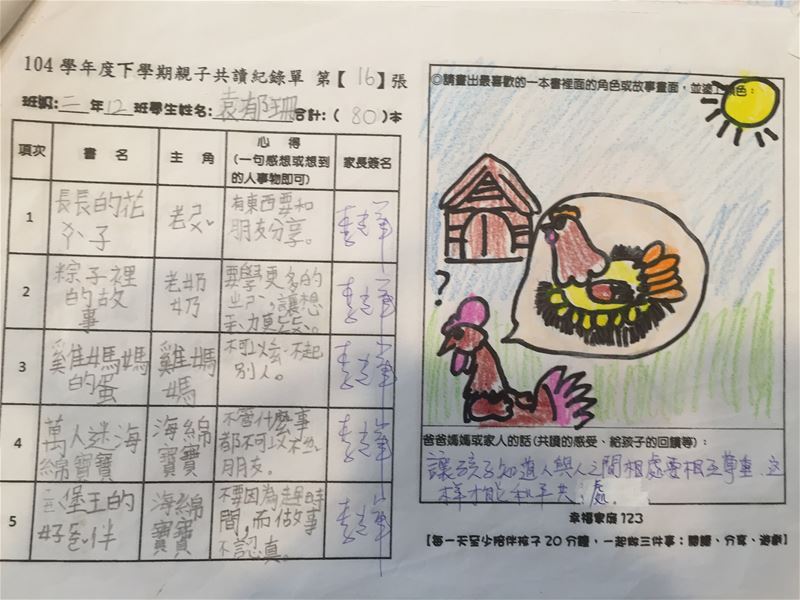 104 學年度下學期親子共讀紀錄單 第【16】張
班級:二年12班學生姓名:袁郁珊合計:(80)本
項次 書名 主角 心得(一句感想或想到的人事物即可) 家長簽名
1
長長的花
ㄕㄣˊ子
老
有東西要和
朋友分享。
2
粽子裡
的故
事
老奶
奶
要學更多的
讓想
力更
3
雞媽媽
的蛋
雞媽
媽
不可以炫
不起
別人。
4
萬人迷海
綿寶寶
海綿
寶寶
不管什麼事
都不可以不
朋友。
5
堡王的
好爸伴
海綿
寶寶
不要因為趕時
間,而做事
不認真。
◎請畫出最喜歡的一本書裡面的角色或故事畫面,並塗
色:
?
爸爸媽媽或家人的話(共讀的感受、給孩子的回饋等):
讓孩子知道人與人之間相處要相互尊重,这
样才能和平共處.
幸福家庭 123
【每一天至少陪伴孩子 20 分鐘,一起做三件事:閱讀、分享、遊戲】